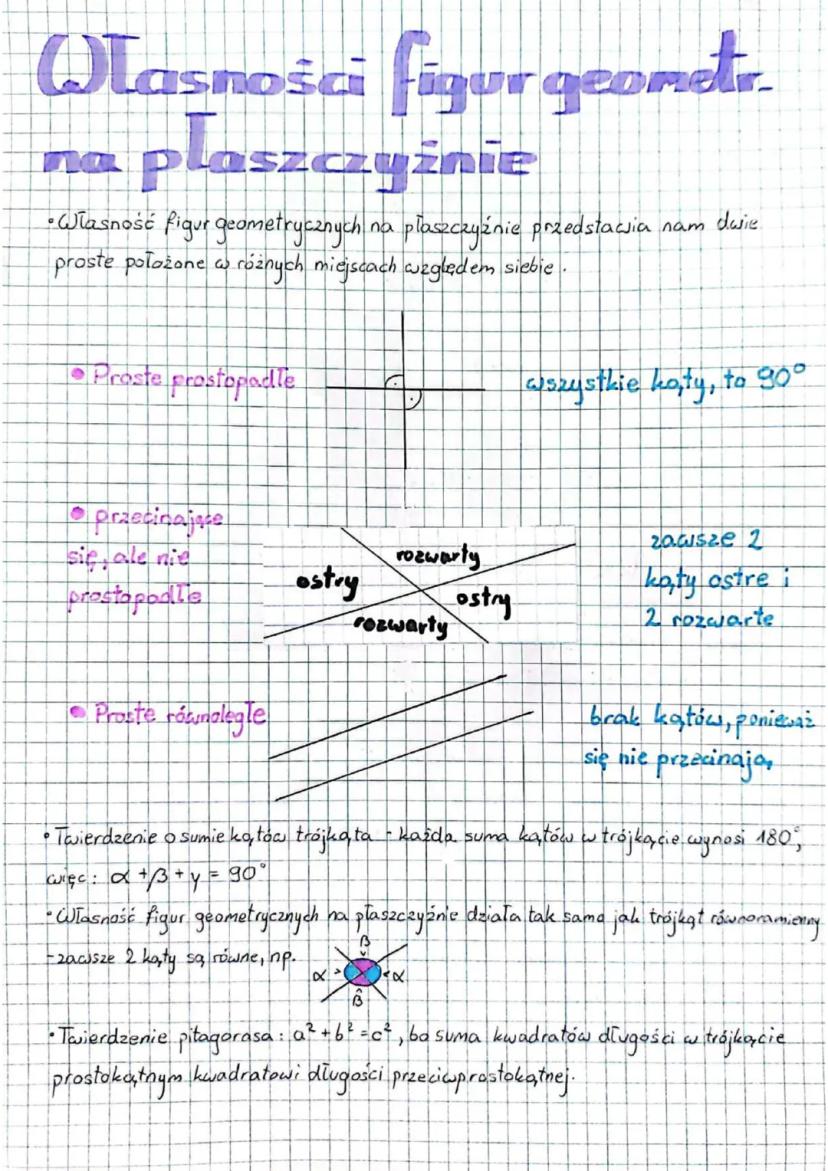 Własności figur geometr.
na płaszczyźnie
• Własność figur geometrycznych na płaszczyźnie przedstawia nam dwie
proste położone w różnych miejscach względem siebie.
• Proste prostopadłe
wszystkie kąty, to 90°
• przecinające
się, ale nie
prostopadłe
rozwarty
ostry
ostry
rozwarty
zawsze 2
kąty ostre i
2 rozwarte
• Proste równoległe
brak kątów, ponieważ
się nie przecinają
• Twierdzenie o sumie kątów trójkąta - każda suma kątów w trójkącie wynosi 180°,
więc: α + β + γ = 90°
• Własność figur geometrycznych na płaszczyźnie działa tak samo jak trójkąt równoramienny
- zawsze 2 kąty są równe, np.
β
α > < α
β
• Twierdzenie pitagorasa: a² + b² = c², bo suma kwadratów długości w trójkącie
prostokątnym kwadratowi długości przeciwprostokątnej.